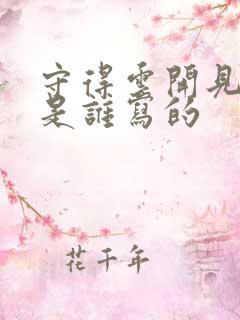 守得雲開見
是誰寫的
花千年